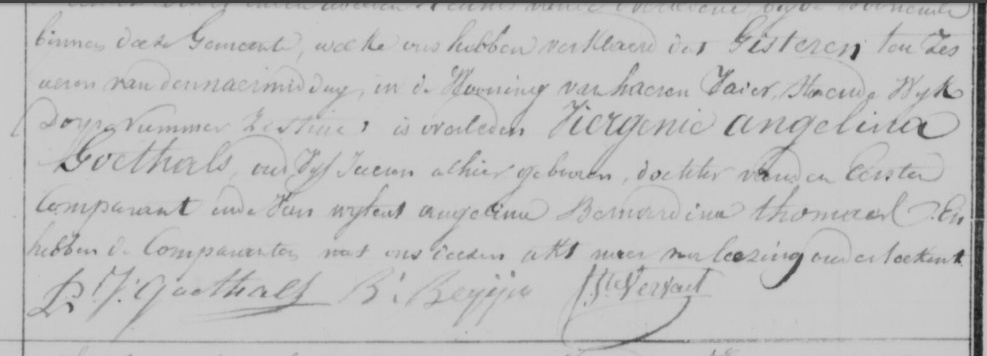 binnen deeze Gemeente, welke ons hebben verklaerd dat Gisteren ten zes
ueren van den naermiddag, in de Wooning van haeren Vaier, staende Wyk
Dorp Nummer is overleden Viergenie angelina
Goethals, oud Vyf Jaeren alhier geboren, dochter van den Eersten
Comparant ende van wylent angelina Bernardina thomaes. En
hebben de Comparanten met ons deezen akt naer voorleezing onderteekent
Goethals B.